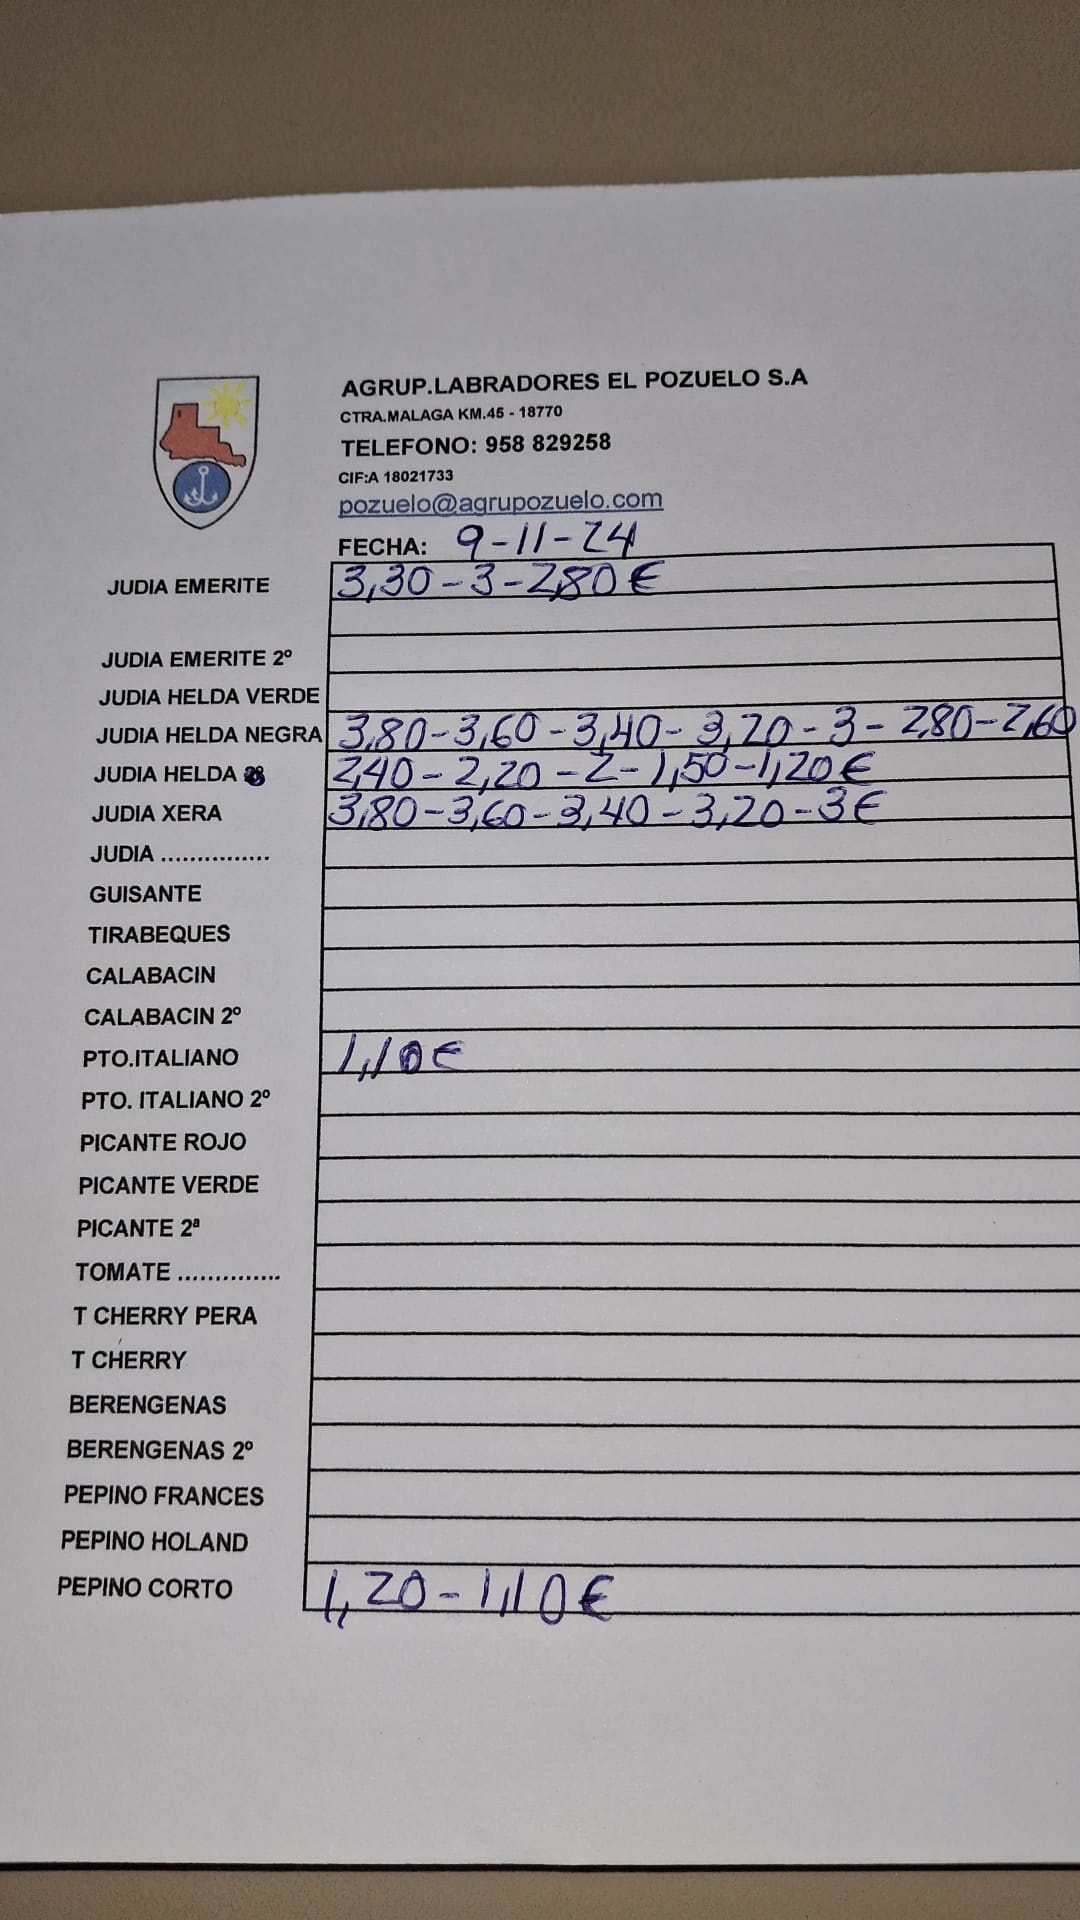 AGRUP.LABRADORES EL POZUELO S.A
CTRA.MALAGA KM.45 - 18770
TELEFONO: 958 829258
CIF:A 18021733
pozuelo@agrupozuelo.com
FECHA: 9-11-24
JUDIA EMERITE 3,30-3-2,80€
JUDIA EMERITE 2º
JUDIA HELDA VERDE
JUDIA HELDA NEGRA 3,80-3,60-3,40-3,20-3-2,80-2,60
JUDIA HELDA 2,40-2,20-2-1,50-1,20€
JUDIA XERA 3,80-3,60-3,40-3,20-3€
JUDIA ...............
GUISANTE
TIRABEQUES
CALABACIN
CALABACIN 2º
PTO.ITALIANO 1,10€
PTO. ITALIANO 2º
PICANTE ROJO
PICANTE VERDE
PICANTE 2ª
TOMATE ..............
T CHERRY PERA
T CHERRY
BERENGENAS
BERENGENAS 2º
PEPINO FRANCES
PEPINO HOLAND
PEPINO CORTO 1,20-1,10€